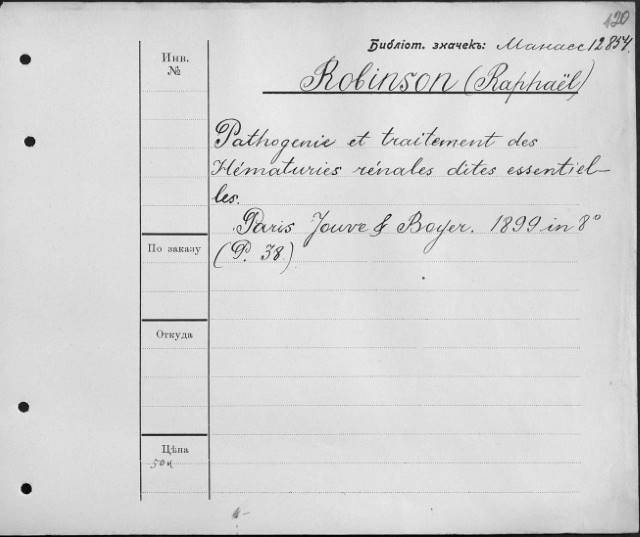 420
Библіот. значекъ: Манасс 12854.
Инв.
№
Robinson (Raphaël)
Pathogenie et traitement des
Hématuries rénales dites essentiel-
les.
Paris Jouve & Boyer. 1899 in 8°
По заказу
(P. 38.)
Откуда
Цѣна
50к